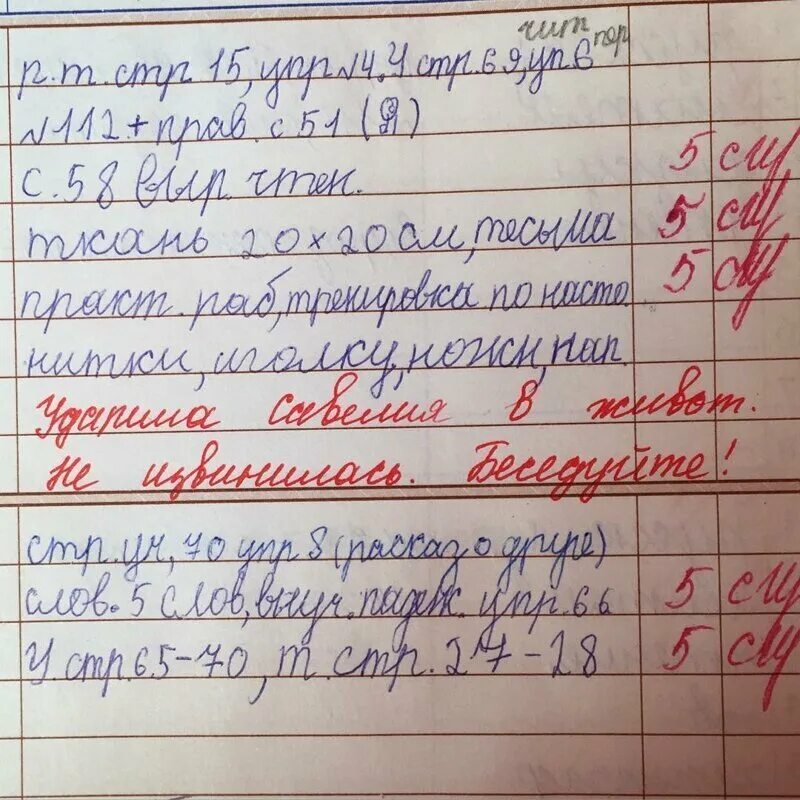 чит пер
р.т. стр 15, упр №4. У стр 69, уп 6
№112 + прав. с 51 (Я)
с. 58 выр. чтен. 5
ткань 20×20 см, тесьма 5
практ. раб, тренировка по насто 5
нитки, иголку, ножн, нап.
Ударила Савелия в живот.
Не извинилась. Беседуйте!
стр. уч, 70 упр 8 (расказ о друге)
слов. 5 слов, выуч. падеж. упр. 66 5
У. стр. 65-70, т. стр. 27-28 5